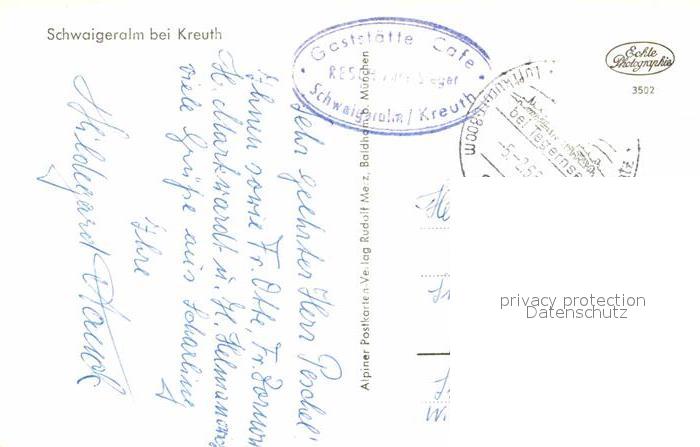 Schwaigeralm bei Kreuth
Gaststätte Cafe
Schwaigeralm / Kreuth
Echte
Photographie
3502
bei Tegernsee
Sehr geehrter Herr Peschel!
Ihnen sowie Fr. Otte, Fr.
H. Markwardt u. H.
viele Grüße aus Scharling
Ihre
Hildegard
Alpiner Postkarten-Verlag Rudolf Metz, Baldham b. München
privacy protection
Datenschutz